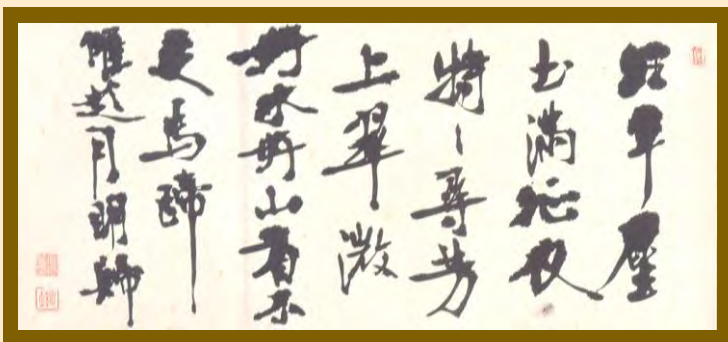 經年塵
土滿征衣
特〻尋芳
上翠微
好水好山看不
足馬蹄
催趁月明歸